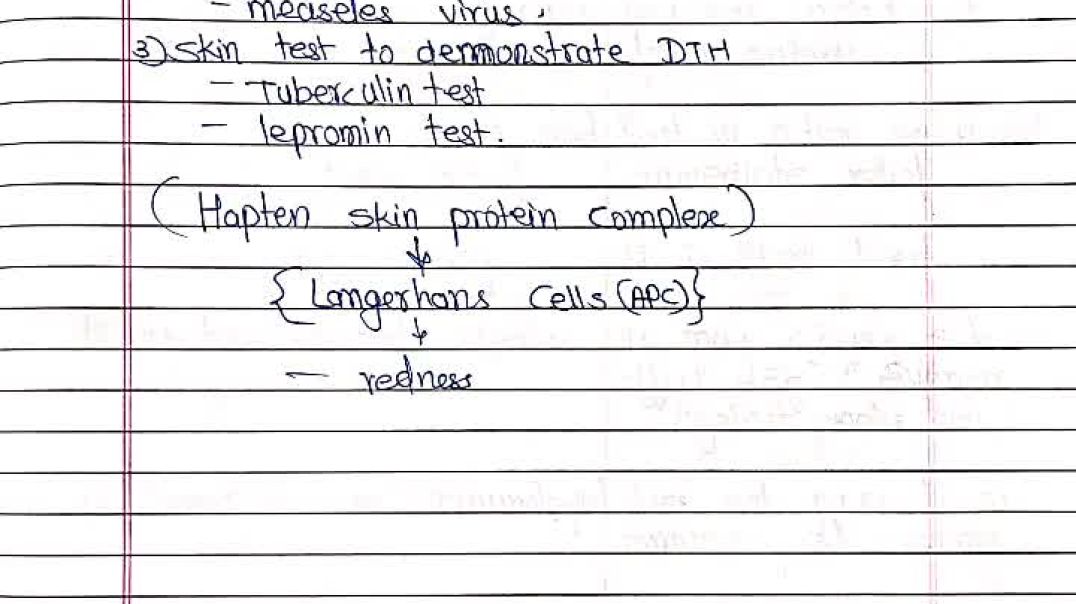 - measeles virus.
3) skin test to demonstrate DTH
- Tuberculin test
- lepromin test.
(Hapten skin protein complexe)
↓
{Langerhans Cells (APC)}
↓
- redness